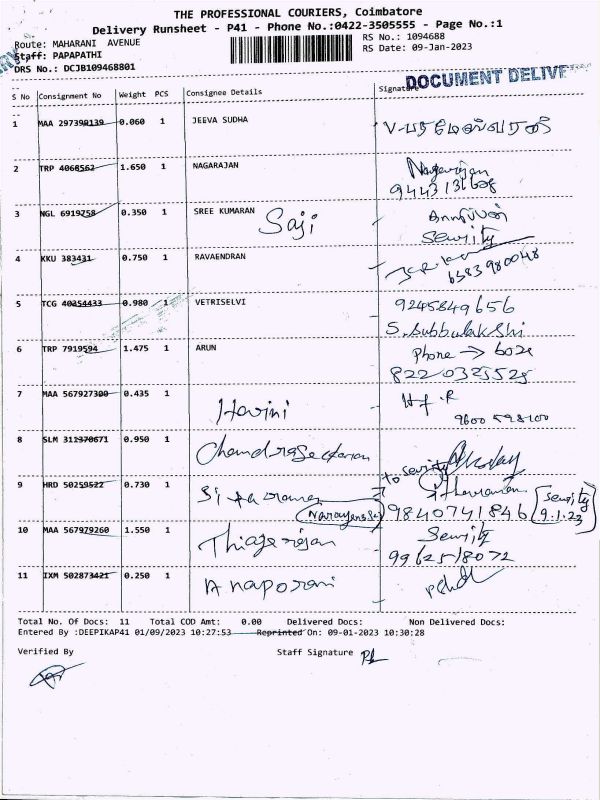 THE PROFESSIONAL COURIERS, Coimbatore
Delivery Runsheet - P41 - Phone No.:0422-3505555 - Page No.:1
Route: MAHARANI AVENUE
RS No.: 1094688
Staff: PAPAPATHI
RS Date: 09-Jan-2023
DRS No.: DCJB109468801
DOCUMENT DELIVE
S No Consignment No Weight PCS Consignee Details Signature
1 MAA 297390139 0.060 1 JEEVA SUDHA
2 TRP 4068562 1.650 1 NAGARAJAN Nagarajan
3 NGL 6919758 0.350 1 SREE KUMARAN Saji
Security
4 KKU 383431 0.750 1 RAVAENDRAN
6383980048
5 TCG 40354433 0.980 1 VETRISELVI 9245849656
S. Subbulakshi
6 TRP 7919594 1.475 1 ARUN Phone → 602
8220325525
7 MAA 567927300 0.435 1 Havini
9600 598100
8 SLM 312370671 0.950 1 Chandrasekaran
to security
9 HRD 50259522 0.730 1 Sitaraman
9840741846 Security 9.1.23
10 MAA 567979260 1.550 1 Thiagarajan Security
9962518072
11 IXM 502873421 0.250 1 Anaporani
Total No. Of Docs: 11 Total COD Amt: 0.00 Delivered Docs: Non Delivered Docs:
Entered By :DEEPIKAP41 01/09/2023 10:27:53 Reprinted On: 09-01-2023 10:30:28
Verified By Staff Signature